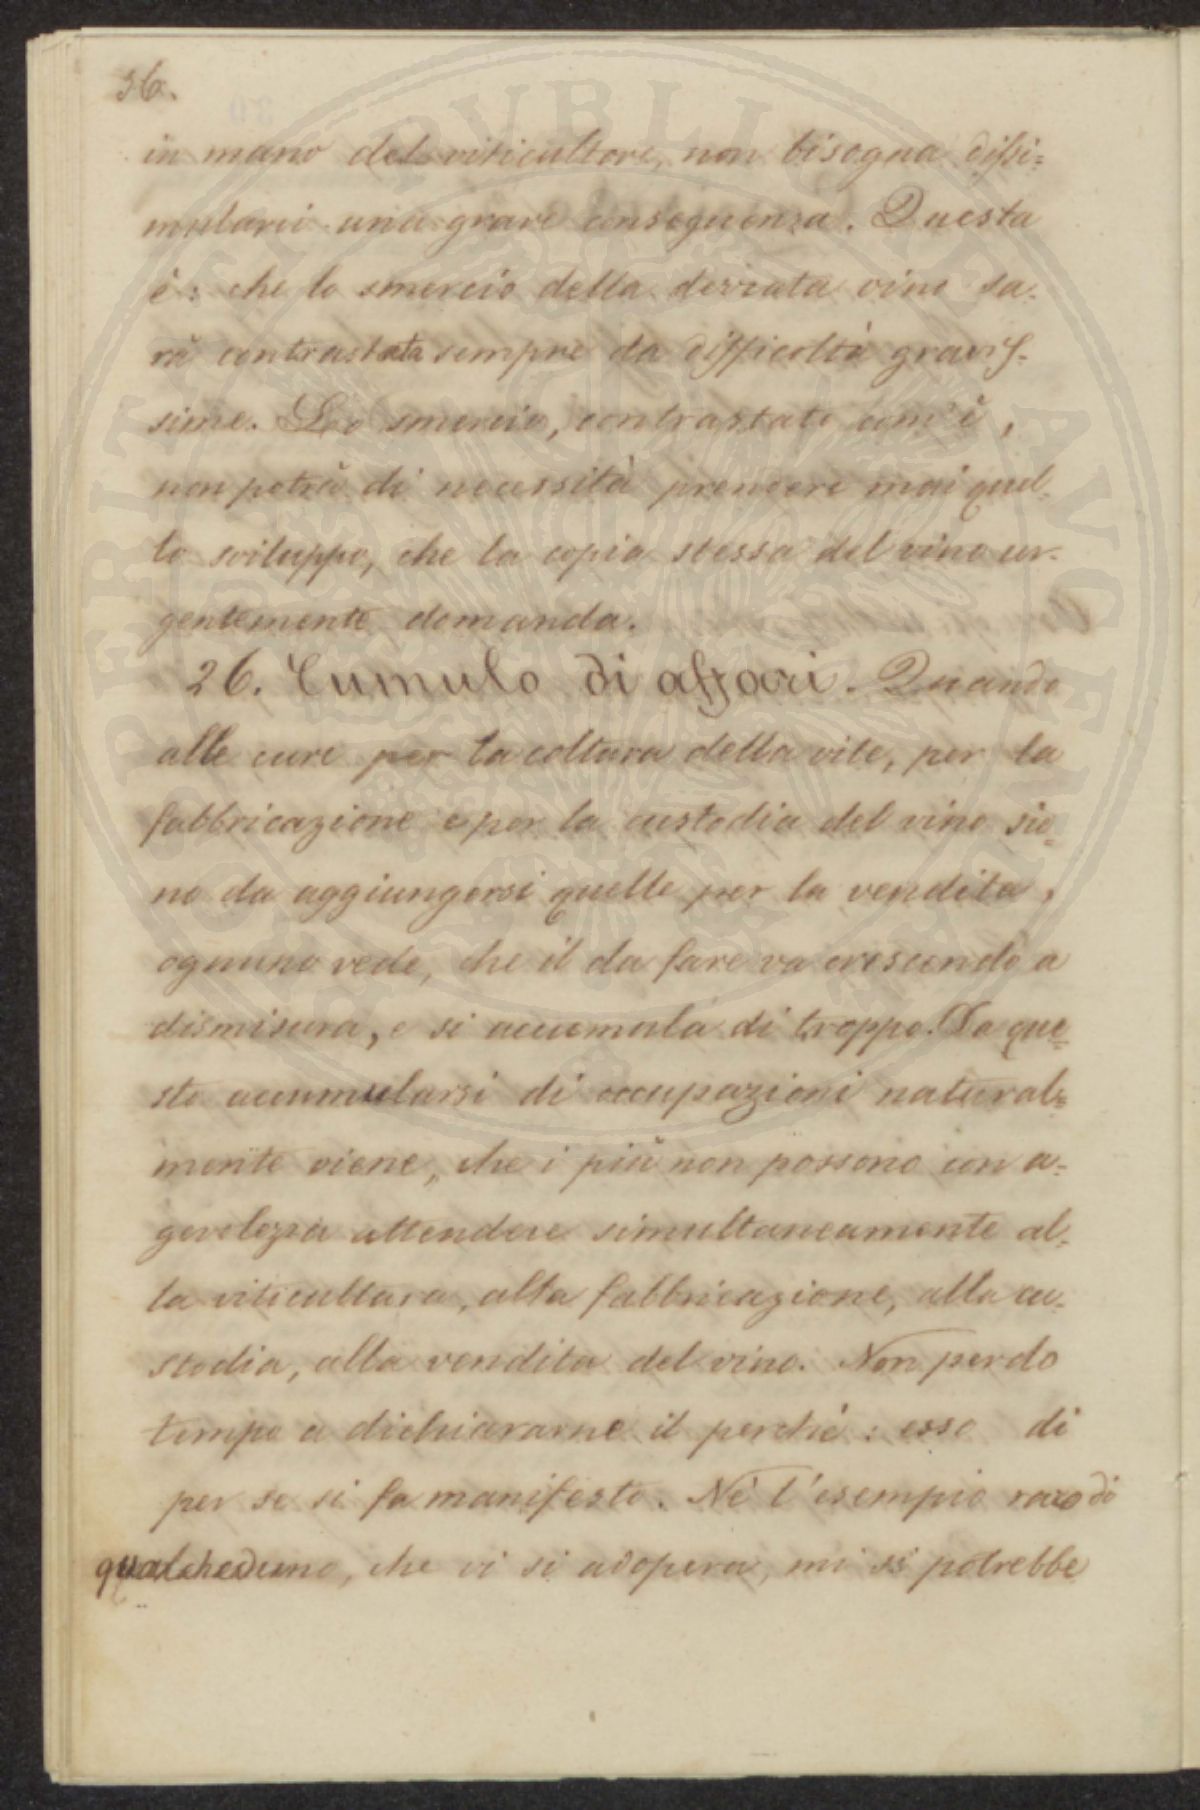 36.
in mano del viticultore, non bisogna dissi=
mularci una grave conseguenza. Questa
è: che lo smercio della derrata vino sa=
rà contrastata sempre da difficoltà gravis=
sime. Lo smercio, contrastato com'è,
non potrà di necessità prendere mai quel=
lo sviluppo, che la copia stessa del vino ur=
gentemente domanda.
26. Cumulo di affari. Quando
alle cure per la coltura della vite, per la
fabbricazione e per la custodia del vino sie=
no da aggiungersi quelle per la vendita,
ognuno vede, che il da fare va crescendo a
dismisura, e si accumula di troppo. Da que=
sto accumularsi di occupazioni natural=
mente viene, che i più non possono con a=
gevolezza attendere simultaneamente al=
la viticultura, alla fabbricazione, alla cu=
stodia, alla vendita del vino. Non perdo
tempo a dichiararne il perchè: esso di
per se si fa manifesto. Nè l'esempio raro di
qualcheduno, che vi si adopera, mi si potrebbe
PROSPERITATI PVBLICAE AVGENDAE